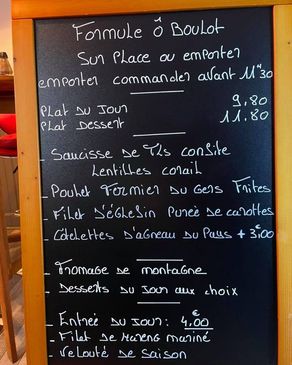 Formule Ô Boulot
Sur Place ou emporter
emporter commander avant 11H30
Plat du Jour 9,80
Plat Dessert 11.80
- Saucisse de Tls confite
Lentilles corail
- Poulet Fermier du Gers Frites
- Filet d'églefin Purée de carottes
- Côtelettes d'agneau du Pays + 3€00
- Fromage de montagne
- Desserts du Jour aux choix
- Entrée du jour: 4,00€
- Filet de Hareng mariné
- Velouté de Saison